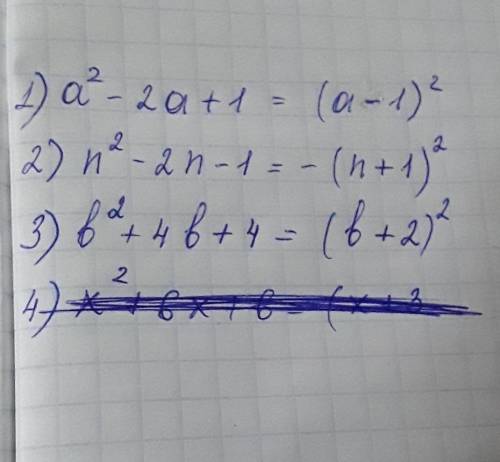 1) a² - 2a + 1 = (a - 1)²
2) n² - 2n - 1 = - (n + 1)²
3) b² + 4b + 4 = (b + 2)²
4)